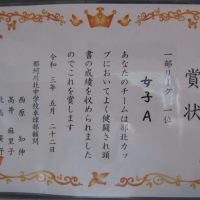 賞状
一部リーグ 一位
女子A
あなたのチームは那北カッ
プにおいてよく健闘され頭
書の成績を収められました
のでこれを賞します
令和三年五月二十二日
那珂川北中学校卓球部顧問
西原 知伸
高井 麻里子